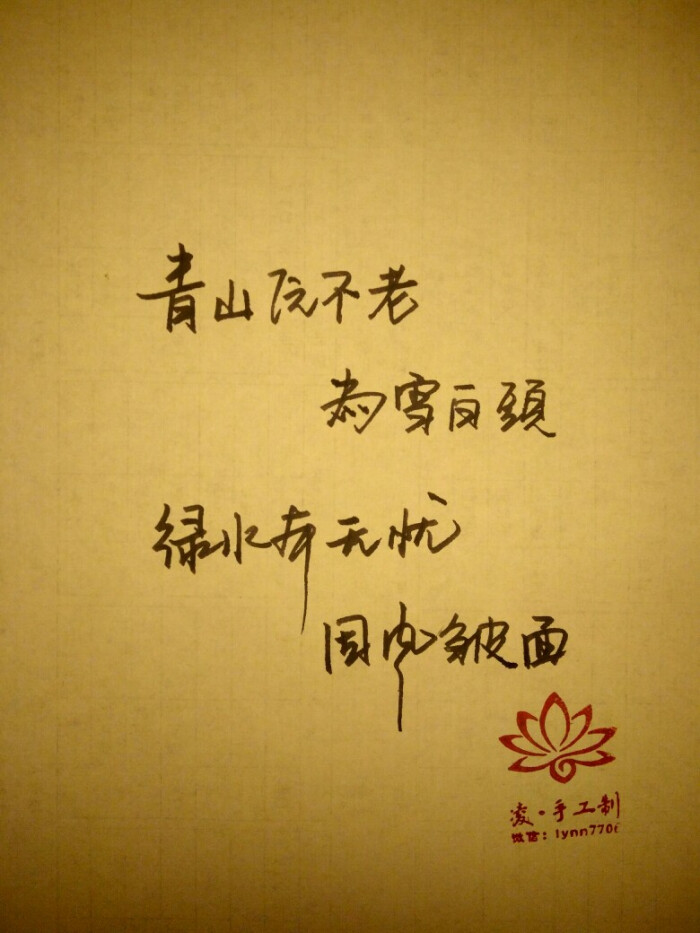 青山原不老
为雪白頭
绿水本无忧
因风皱面
凌·手工制
微信：lynn770